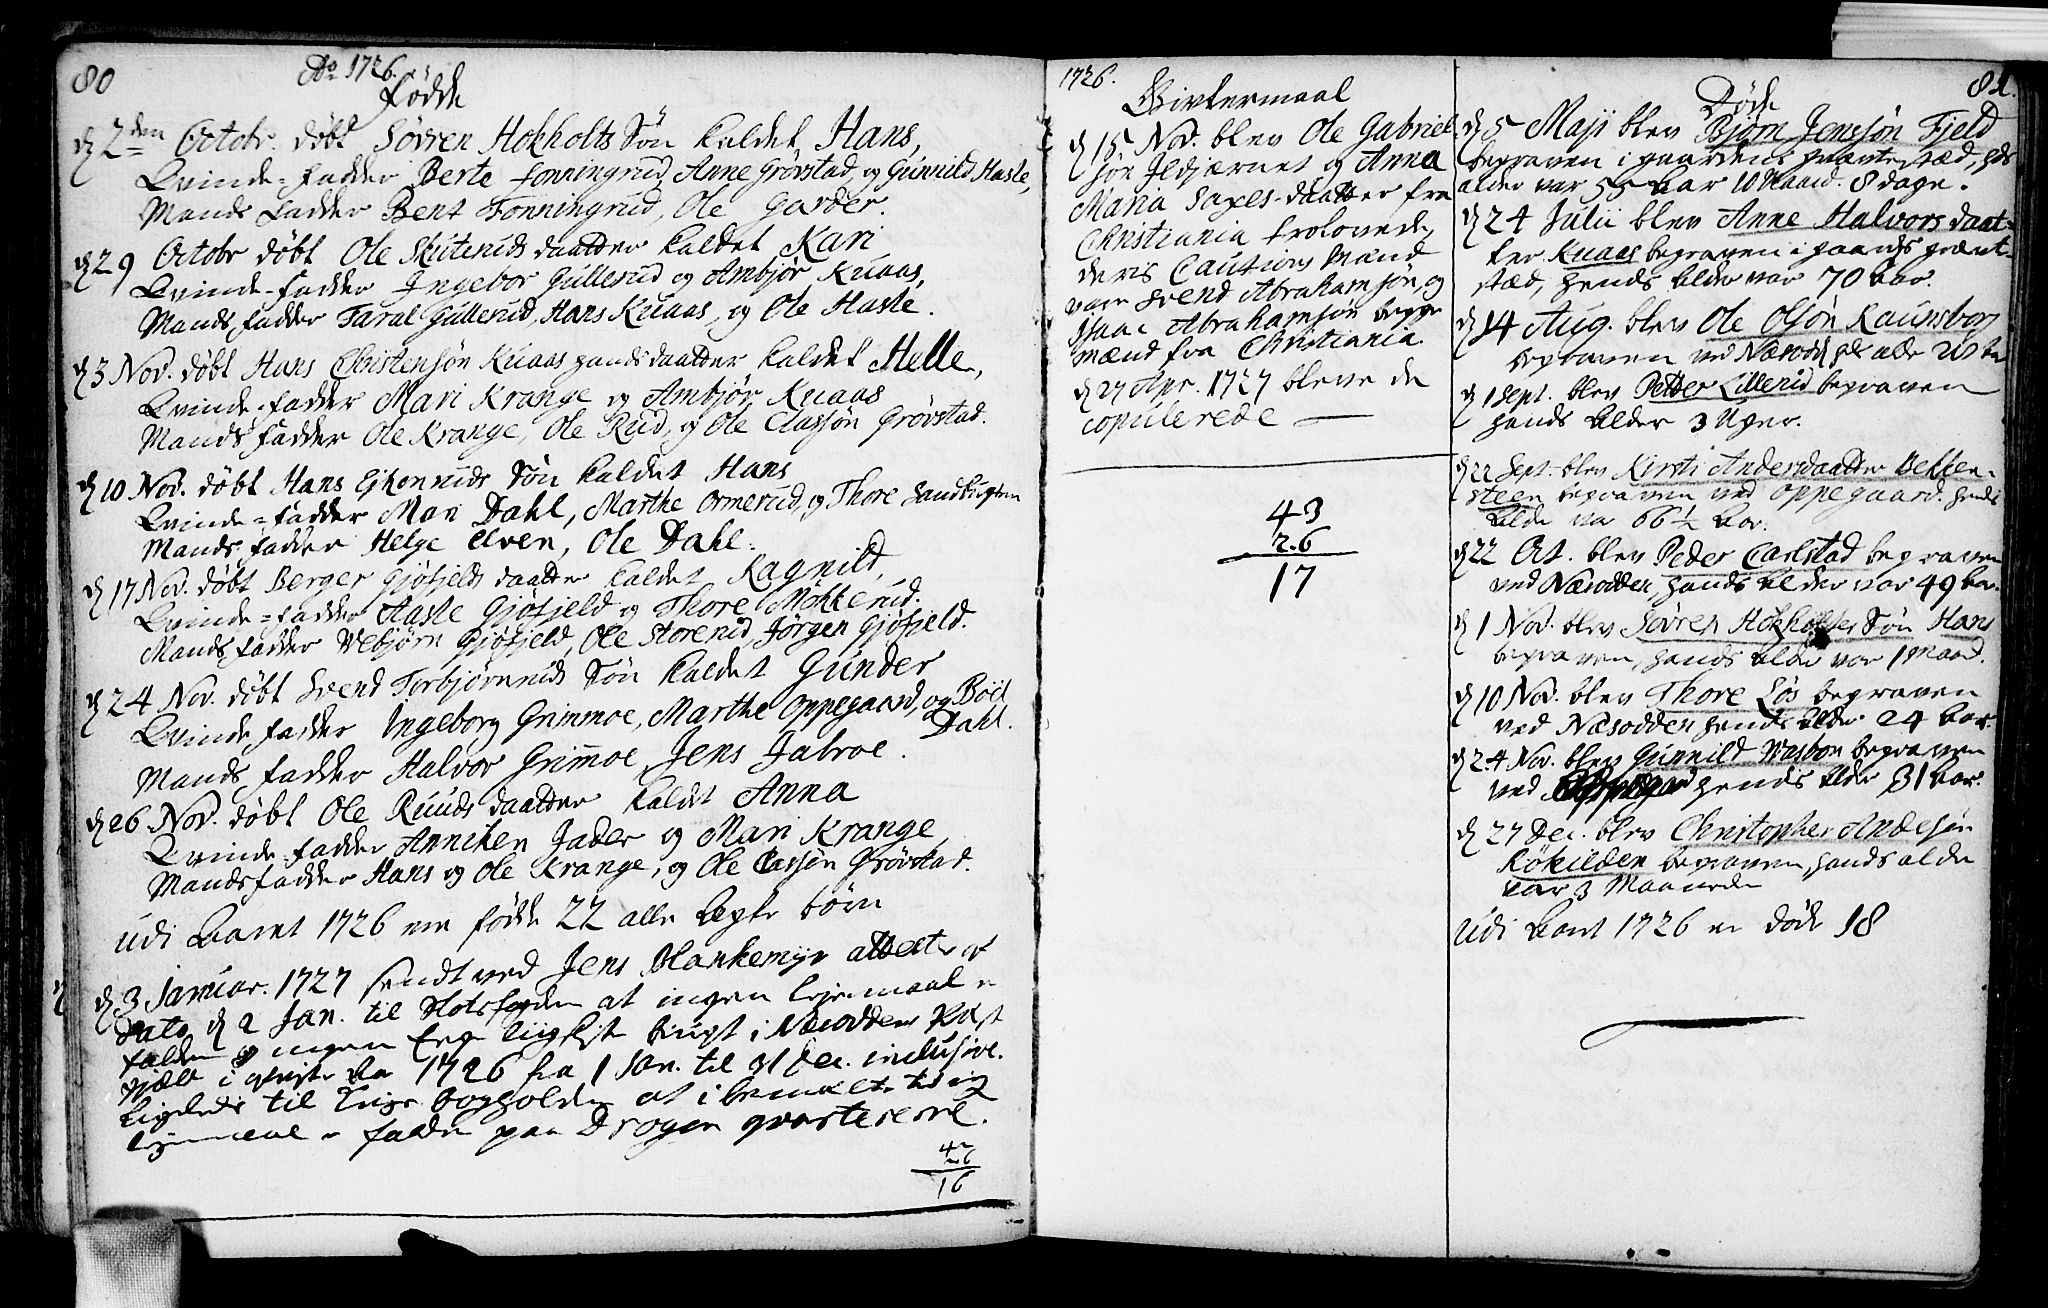 80
Ao 1726.
Födde
d 2den Octobr. döbt Sövren Hokholts Sön kaldet Hans,
Qvinde-fadder Berte Fonningrud, Anne Grövstad, og Gunnild Hasle,
Mands fadder Bent Fonningrud, Ole Garder.
d 29 Octobr döbt Ole Skuteruds daatter kaldet Kari
Qvinde-fadder Ingebor Gullerud og Ambjör Kuaas,
Mands fadder Taral Gullerud, Hans Kuaas, og Ole Hasle.
d 3 Nov. döbt Hans Christensön Kuaas hands daatter kaldet Helle,
Qvinde-fadder Mari Krange og Ambjör Kuaas
Mands fadder Ole Krange, Ole Rud, og Ole Classön Grövstad.
d 10 Nov. döbt Hans Ejkeruds Sön kaldet Hans
Qvinde-fadder Mari Dahl, Marthe Ormerud, og Thore Sandbugten
Mands fadder Helge Elven, Ole Dahl.
d 17 Nov. döbt Berger Gjöfjelds daatter kaldet Ragnild,
Qvinde-fadder Aasle Gjöfjeld og Thore Mökkerud.
Mands fadder Vebjörn Gjöfjeld, Ole Storerud, Jörgen Gjöfjeld.
d 24 Nov. döbt Svend Torbjörnruds Sön kaldet Gunder
Qvinde fadder Ingeborg Grimmoe, Marthe Oppegaard, og Böel Dahl.
Mands fadder Halvor Grimmoe, Jens Jabroe.
d 26 Nov. döbt Ole Ruuds daatter kaldet Anna
Qvinde-fadder Anniken Jader og Mari Krange,
Mands fadder Hans og Ole Krange, og Ole Classön Grövstad.
Udi Aaret 1726 ere födde 22 alle ægte börn
d 3 Januar. 1727 sendt med Jens Blankemyr attest af
Dato d 2 Jan. til at ingen lejermaal er
falden og ingen i Næsodden
i Aar 1726 fra 1 Jan. til 31 Dec. inclusive.
Ligeledes til at i bemelte tid
lejermaal er falden paa Dragon qvarterene.
42
26
16
1726.
Givtermaal
d 15 Nov. blev Ole Gabriel-
sön Ildjernet og Anna
Maria Saxes-daatter fra
Christiania trolovede,
deris Cautions Mænd
vare Svend Abrahamsön og
Isaac Abrahamsön begge
mænd fra Christiania.
d 27 Apr. 1727 bleve de
copulerede
43
26
17
81.
Döde
d 5 Maji blev Björn Jenssön Fjeld
begraven i gaardens grænte stæd, hds
alder var 55 aar 10 Maaned. 8 dage.
d 24 Julii blev Anne Halvors daat-
ter Kuaas begraven i gaards grænt-
stæd, hends alder var 70 aar.
d 14 Aug. blev Ole Olsön Raunsborg
begraven ved Næsodd
d 1 Sept. blev Petter Lillerud begraven
hands alder 3 Uger.
d 22 Sept. blev Kirsti Andersdaatter Bekken-
steen begraven ved Oppegaard. hends
alde var 66 1/2 aar.
d 22 Oct. blev Peder Carlstad begraven
ved Næsodden, hands alder var 49 aar.
d 1 Nov. blev Sövren Hokholtes Sön Hans
begraven, hands alder var 1 maaned.
d 10 Nov. blev Thore Lös begraven
ved Næsodden hends alder 24 aar.
d 24 Nov. blev Gunnild Wasbon begraven
ved hends alder 31 aar.
d 27 Dec. blev Christopher Andersön
Rökilden begraven, hands alder
var 3 Maaneder
Udi Aaret 1726 er döde 18